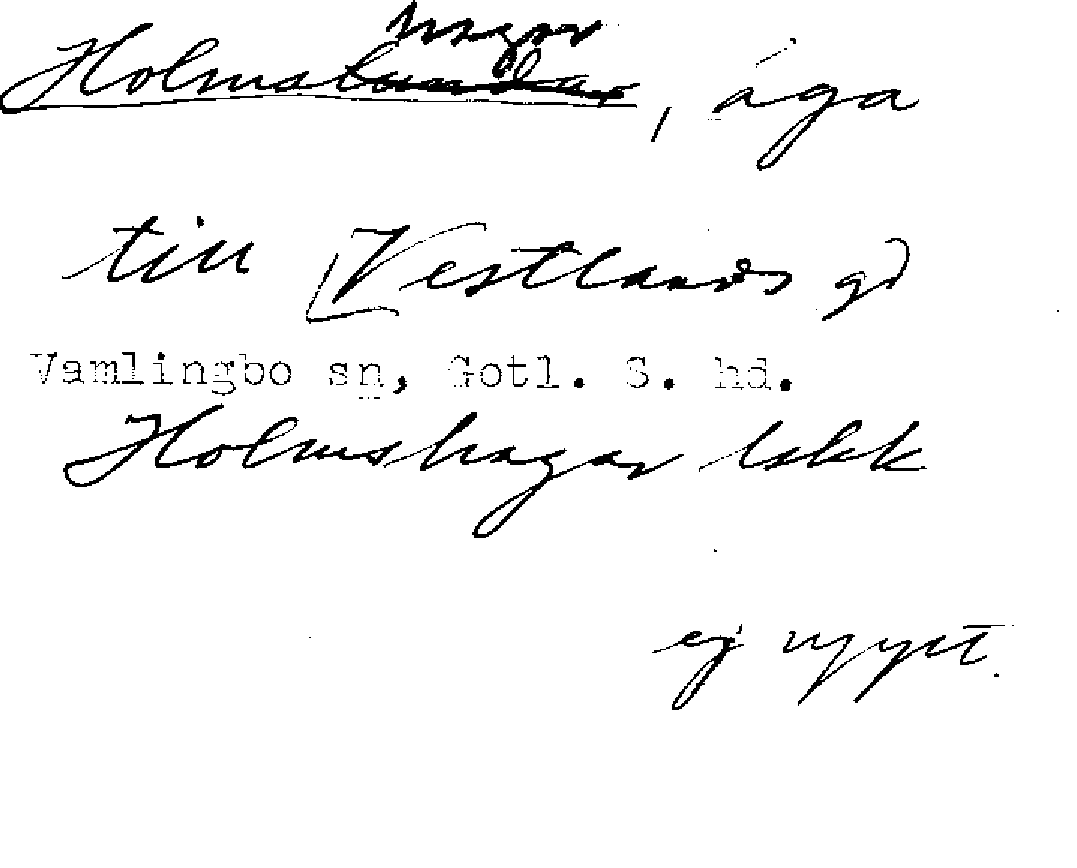 hagar
Holmslundar, äga
till Vestlands gd
Vamlingbo sn, Gotl. S. hd.
Holmshagar lskk
ej uppt.